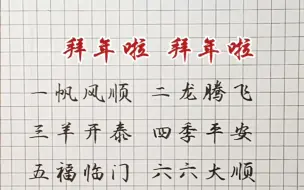 拜年啦 拜年啦
一帆风顺 二龙腾飞
三羊开泰 四季平安
五福临门 六六大顺